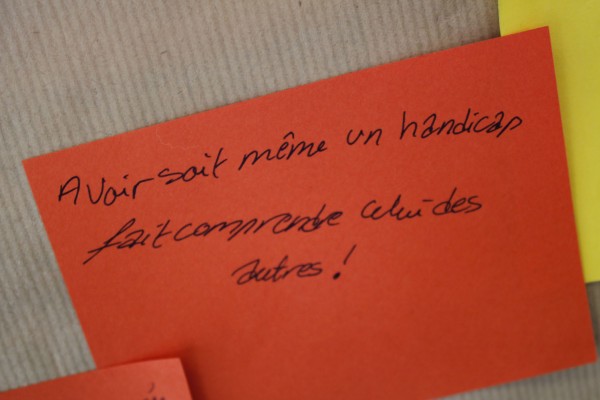 Avoir soit même un handicap
fait comprendre celui des
autres !